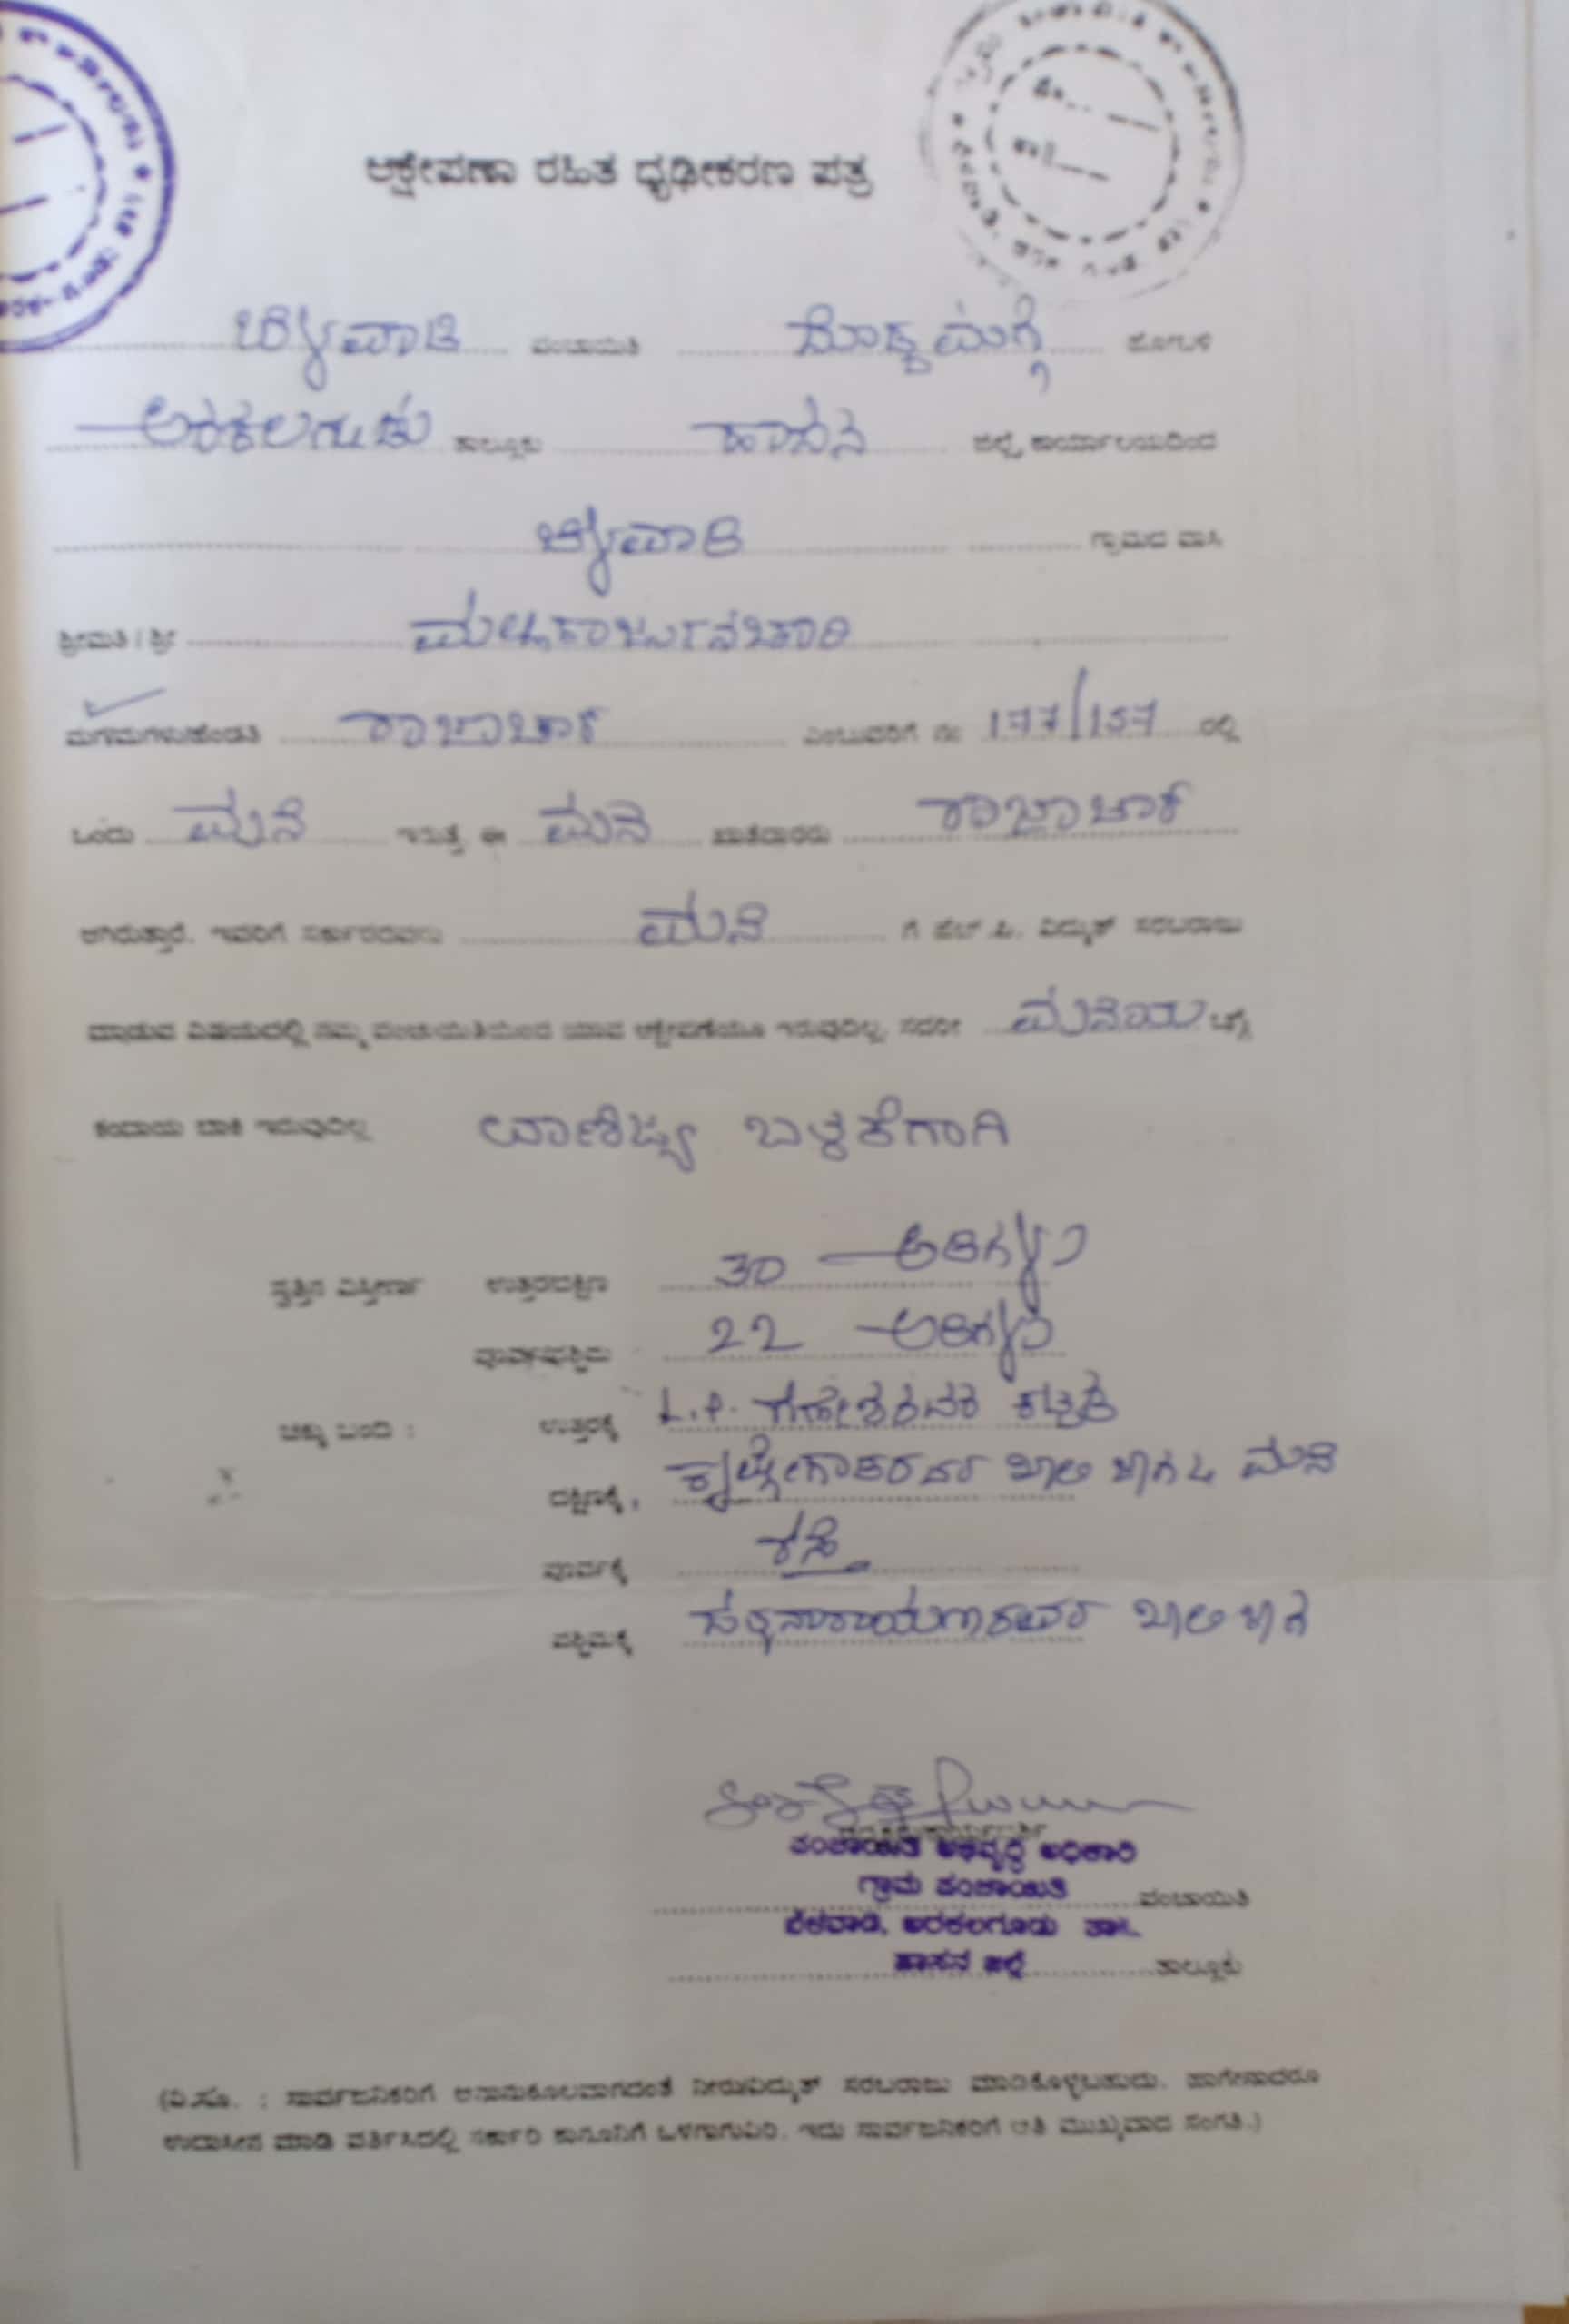 ಆಕ್ಷೇಪಣಾ ರಹಿತ ಧೃಢೀಕರಣ ಪತ್ರ
ಪಂಚಾಯಿತಿ ದೊಡ್ಡಮಗ್ಗೆ ಹೋಬಳಿ
ಅರಕಲಗೂಡು ತಾಲ್ಲೂಕು ಹಾಸನ ಜಿಲ್ಲೆ, ಕಾರ್ಯಾಲಯದಿಂದ
ಗ್ರಾಮದ ವಾಸಿ
ಶ್ರೀಮತಿ / ಶ್ರೀ ಮಲ್ಲಿಕಾರ್ಜುನಚಾರಿ
ಮಗ/ಮಗಳು/ಹೆಂಡತಿ ರಾಜಾಚಾರಿ ಎಂಬುವರಿಗೆ ನಂ 177/157 ರಲ್ಲಿ
ಒಂದು ಮನೆ ಇರುತ್ತೆ ಈ ಮನೆ ಖಾತೆದಾರರು ರಾಜಾಚಾರಿ
ಆಗಿರುತ್ತಾರೆ. ಇವರಿಗೆ ಸರ್ಕಾರದವರು ಮನೆ ಗೆ ಹೆಚ್.ಪಿ. ವಿದ್ಯುತ್ ಸರಬರಾಜು
ಮಾಡುವ ವಿಷಯದಲ್ಲಿ ನಮ್ಮ ಪಂಚಾಯಿತಿಯಿಂದ ಯಾವ ಆಕ್ಷೇಪಣೆಯೂ ಇರುವುದಿಲ್ಲ. ಸದರೀ ಮನೆಯ
ಕಂದಾಯ ಬಾಕಿ ಇರುವುದಿಲ್ಲ ವಾಣಿಜ್ಯ ಬಳಕೆಗಾಗಿ
ಸ್ವತ್ತಿನ ವಿಸ್ತೀರ್ಣ ಉತ್ತರದಕ್ಷಿಣ 30 ಅಡಿಗಳು
ಪೂರ್ವಪಶ್ಚಿಮ 22 ಅಡಿಗಳು
ಚಕ್ಕು ಬಂದಿ : ಉತ್ತರಕ್ಕೆ L.P.
ದಕ್ಷಿಣಕ್ಕೆ ಖಾಲಿ ಜಾಗ ಮನೆ
ಪೂರ್ವಕ್ಕೆ ರಸ್ತೆ
ಪಶ್ಚಿಮಕ್ಕೆ ಸತ್ಯನಾರಾಯಣರಾವರ ಖಾಲಿ ಜಾಗ
ಪಂಚಾಯಿತಿ ಅಭಿವೃದ್ಧಿ ಅಧಿಕಾರಿ
ಗ್ರಾಮ ಪಂಚಾಯಿತಿ ಪಂಚಾಯಿತಿ
ಬೆಳವಾಡಿ, ಅರಕಲಗೂಡು ತಾ||
ಹಾಸನ ಜಿಲ್ಲೆ ತಾಲ್ಲೂಕು
(ವಿ.ಸೂ. : ಸಾರ್ವಜನಿಕರಿಗೆ ಅನಾನುಕೂಲವಾಗದಂತೆ ನೀರು/ವಿದ್ಯುತ್ ಸರಬರಾಜು ಮಾಡಿಕೊಳ್ಳಬಹುದು. ಹಾಗೇನಾದರೂ
ಉದಾಸೀನ ಮಾಡಿ ವರ್ತಿಸಿದಲ್ಲಿ ಸರ್ಕಾರಿ ಕಾನೂನಿಗೆ ಒಳಗಾಗುವಿರಿ. ಇದು ಸಾರ್ವಜನಿಕರಿಗೆ ಅತಿ ಮುಖ್ಯವಾದ ಸಂಗತಿ.)